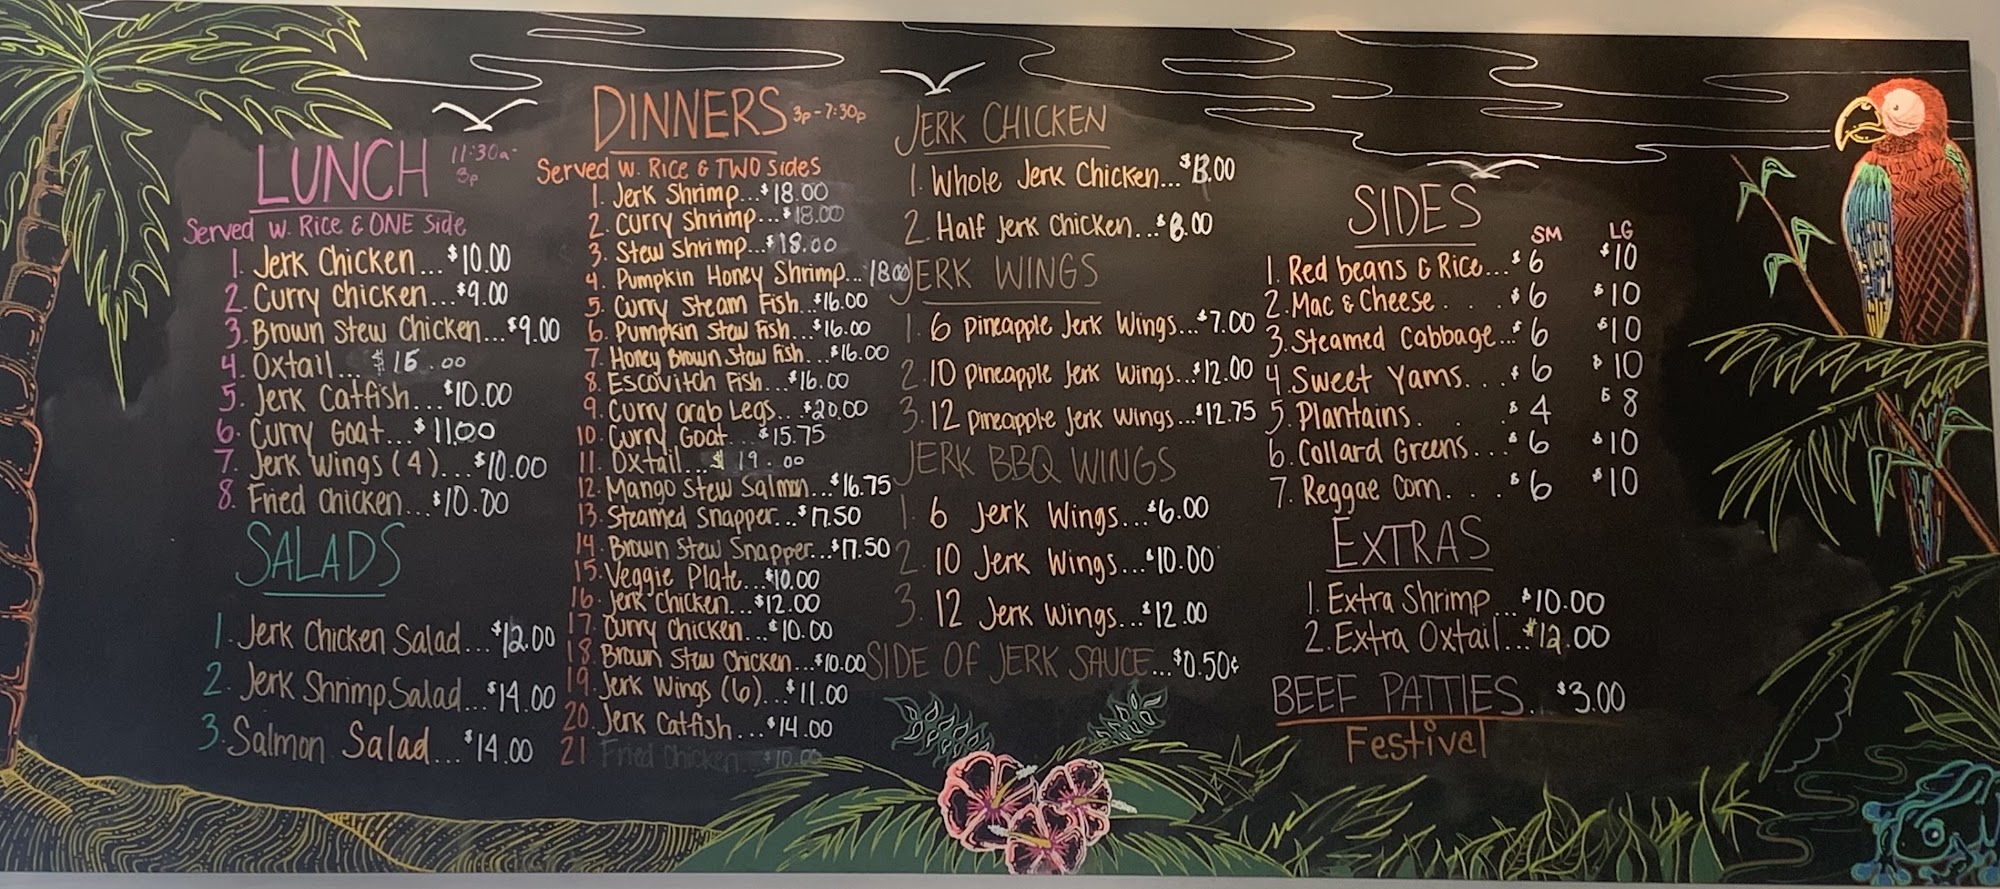 LUNCH 11:30a-
3p
Served w. Rice & ONE Side
1. Jerk Chicken...$10.00
2. Curry Chicken...$9.00
3. Brown Stew Chicken...$9.00
4. Oxtail... $15.00
5. Jerk Catfish...$10.00
6. Curry Goat...$11.00
7. Jerk Wings (4)...$10.00
8. Fried Chicken...$10.00
SALADS
1. Jerk Chicken Salad...$12.00
2. Jerk Shrimp Salad...$14.00
3. Salmon Salad...$14.00
DINNERS 3p-7:30p
Served w. Rice & TWO Sides
1. Jerk Shrimp...$18.00
2. Curry Shrimp...$18.00
3. Stew Shrimp...$18.00
4. Pumpkin Honey Shrimp...18.00
5. Curry Steam Fish..$16.00
6. Pumpkin Stew Fish...$16.00
7. Honey Brown Stew Fish...$16.00
8. Escovitch Fish...$16.00
9. Curry Crab Legs...$20.00
10. Curry Goat... $15.75
11. Oxtail...$19.00
12. Mango Stew Salmon...$16.75
13. Steamed Snapper...$17.50
14. Brown Stew Snapper...$17.50
15. Veggie Plate...$10.00
16. Jerk Chicken...$12.00
17. Curry Chicken...$10.00
18. Brown Stew Chicken...$10.00
19. Jerk Wings (6)...$11.00
20. Jerk Catfish...$14.00
21 Fried Chicken...$10.00
JERK CHICKEN
1. Whole Jerk Chicken...$13.00
2. Half Jerk Chicken...$8.00
JERK WINGS
1. 6 Pineapple Jerk Wings...$7.00
2. 10 Pineapple Jerk Wings...$12.00
3. 12 Pineapple Jerk Wings...$12.75
JERK BBQ WINGS
1. 6 Jerk Wings...$6.00
2. 10 Jerk Wings...$10.00
3. 12 Jerk Wings...$12.00
SIDE OF JERK SAUCE...$0.50¢
SIDES
SM LG
1. Red beans & Rice...$6 $10
2. Mac & Cheese . . . $6 $10
3. Steamed Cabbage...$6 $10
4. Sweet Yams. . . $6 $10
5. Plantains. . . $4 $8
6. Collard Greens...$6 $10
7. Reggae Corn. . . $6 $10
EXTRAS
1. Extra Shrimp...$10.00
2. Extra Oxtail...$12.00
BEEF PATTIES. $3.00
Festival